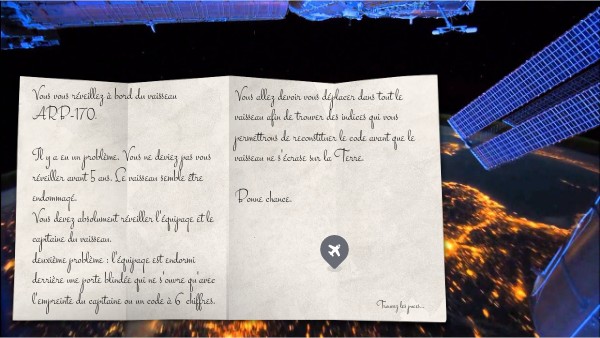 Vous vous réveillez à bord du vaisseau
ARP-170.
Il y a eu un problème. Vous ne deviez pas vous
réveiller avant 5 ans. Le vaisseau semble être
endommagé.
Vous devez absolument réveiller l'équipage et le
capitaine du vaisseau.
deuxième problème : l'équipage est endormi
derrière une porte blindée qui ne s'ouvre qu'avec
l'empreinte du capitaine ou un code à 6 chiffres.
Vous allez devoir vous déplacer dans tout le
vaisseau afin de trouver des indices qui vous
permettrons de reconstituer le code avant que le
vaisseau ne s'écrase sur la Terre.
Bonne chance.
Trouvez les